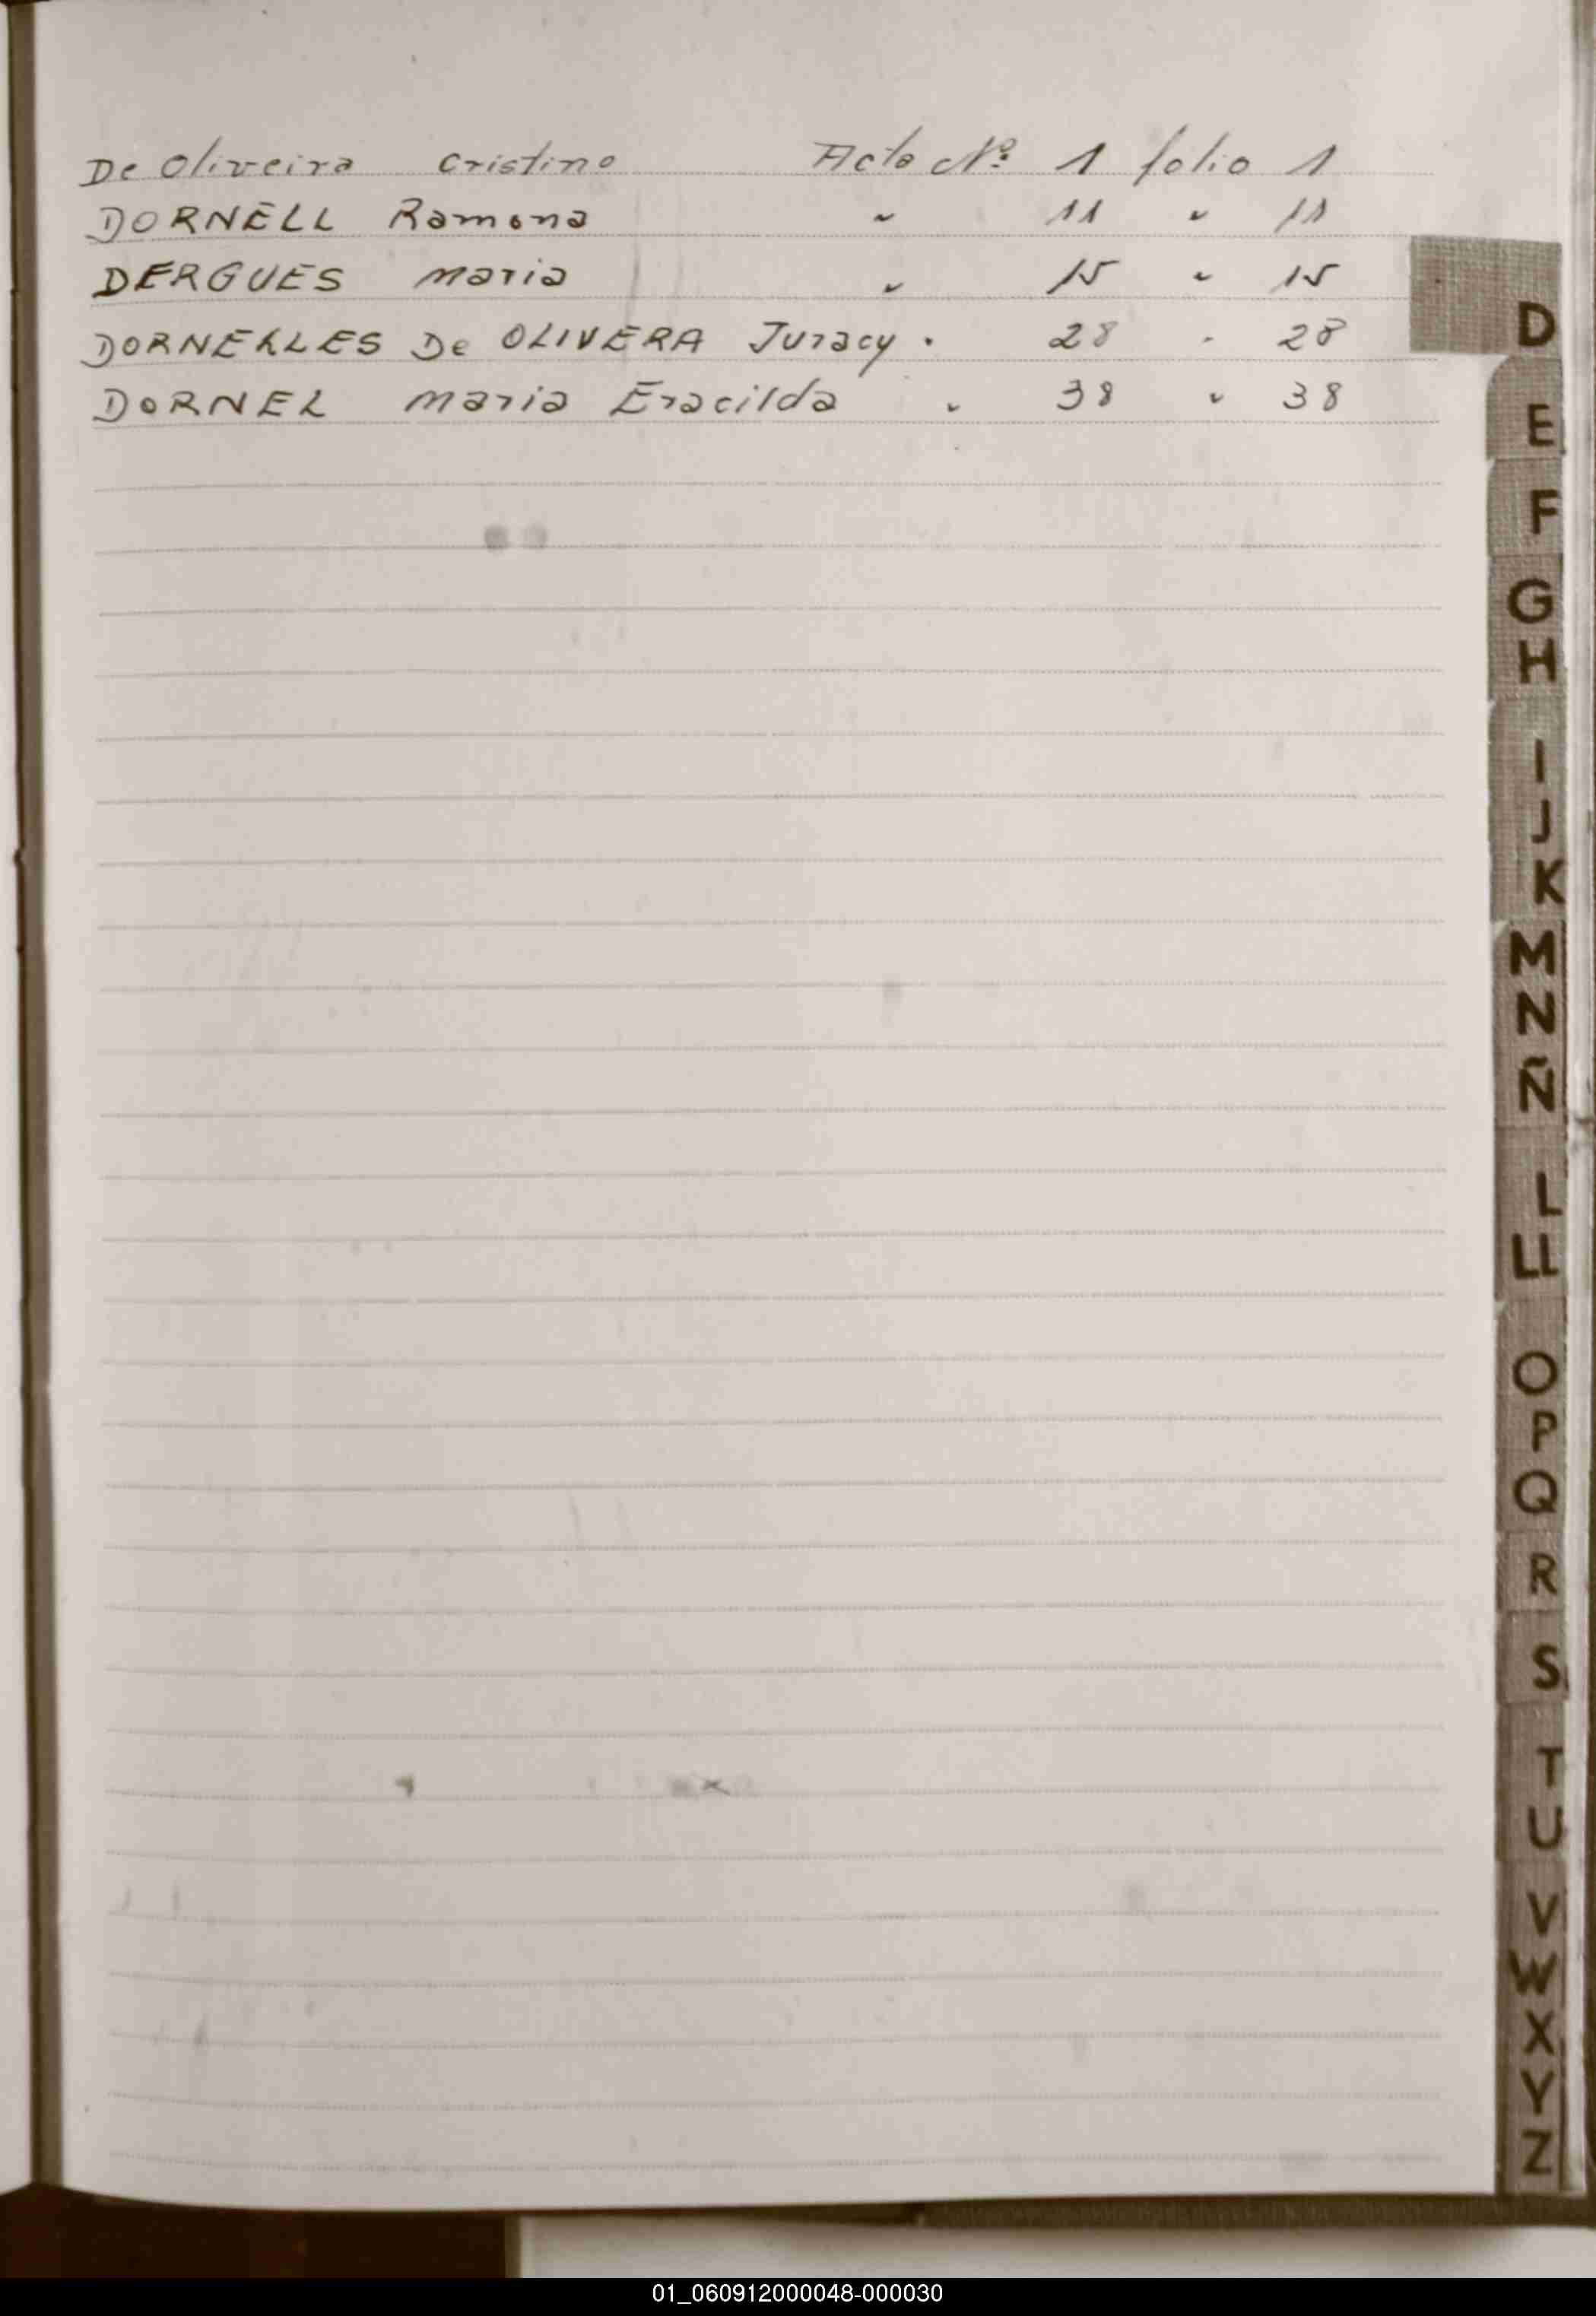 De Oliveira Cristino Acta Nº 1 folio 1
DORNELL Ramona " 11 " 11
DERGUES Maria " 15 " 15
DORNELLES De OLIVERA Juracy " 28 " 28
DORNEL Maria Eracilda " 38 " 38
D
E
F
G
H
I
J
K
M
N
Ñ
L
LL
O
P
Q
R
S
T
U
V
W
X
Y
Z
01_060912000048-000030